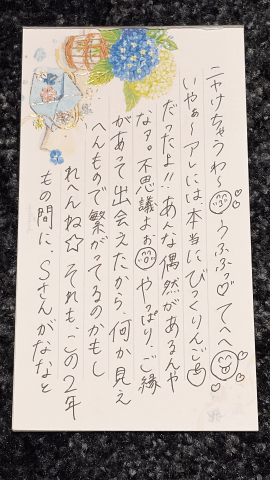 ニヤけちゃうわ〜😊うふふっ♡てへへ😝♡♡
いやぁ〜アレには本当にびっくりんご🍎
だったよ!!あんな偶然があるんや
なァ。不思議よぉ😊やっぱり、ご縁
があって出会えたから、何か見え
へんもので繋がってるのかもし
れへんね☆それも、この2年
もの間に、Sさんがななと